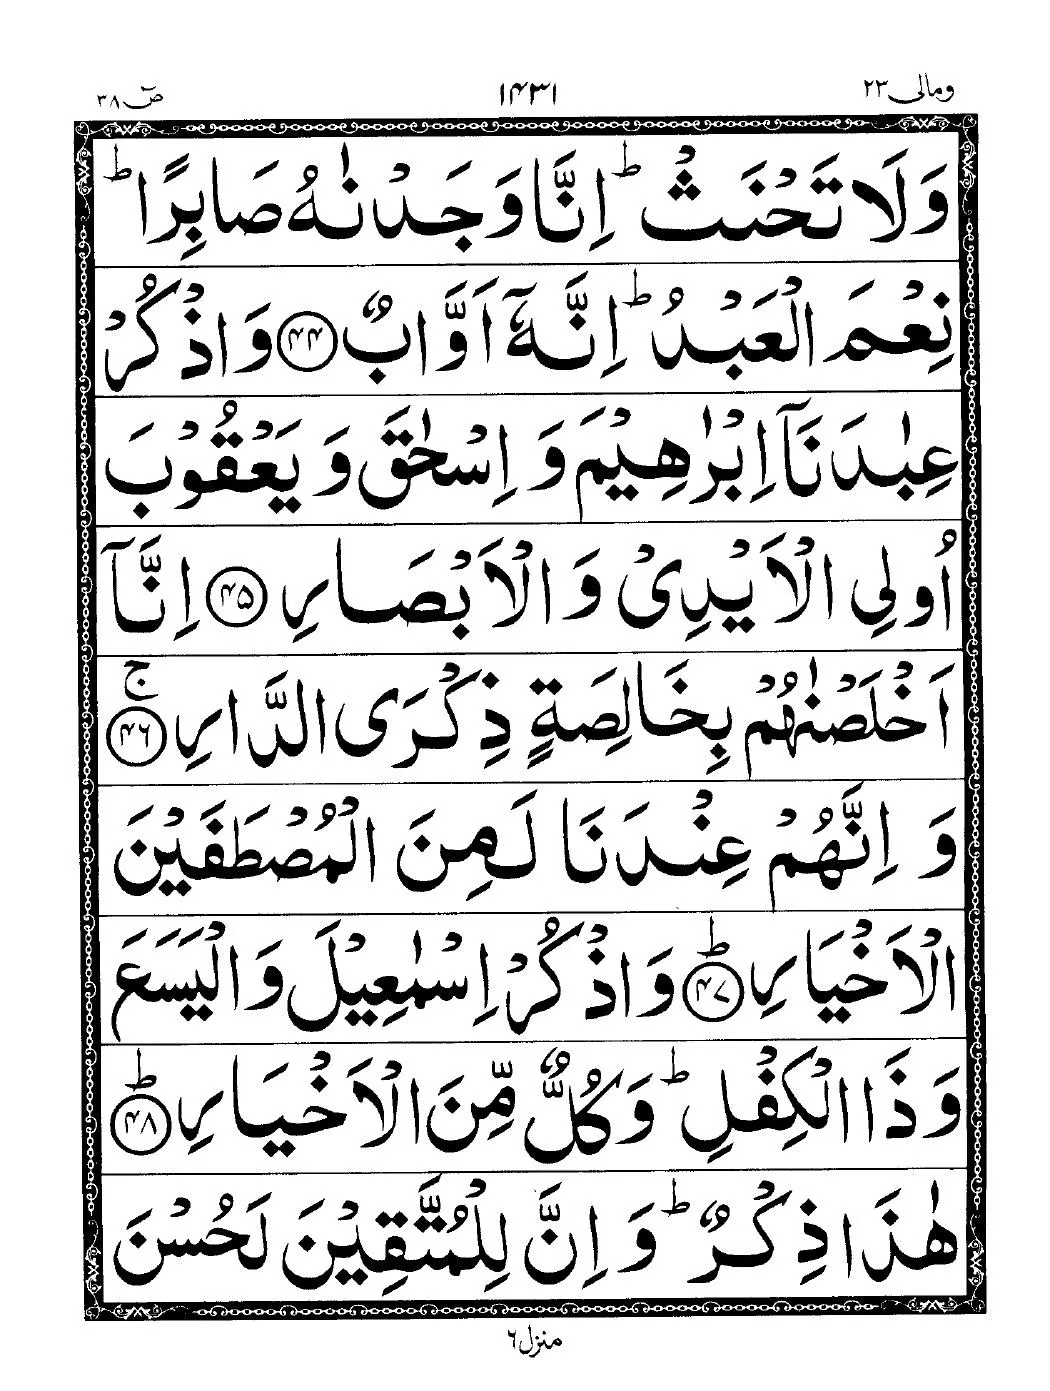 ومالی ۲۳ ۱۴۳۱ صٓ ۳۸
وَلَا تَحْنَثْ ؕ اِنَّا وَجَدْنٰهُ صَابِرًا ؕ
نِعْمَ الْعَبْدُ ؕ اِنَّهٗۤ اَوَّابٌ ﴿۴۴﴾ وَاذْكُرْ
عِبٰدَنَاۤ اِبْرٰهِيْمَ وَ اِسْحٰقَ وَ يَعْقُوْبَ
اُولِی الْاَيْدِیْ وَ الْاَبْصَارِ ﴿۴۵﴾ اِنَّاۤ
اَخْلَصْنٰهُمْ بِخَالِصَةٍ ذِكْرَی الدَّارِ ﴿۴۶﴾ ۚ
وَ اِنَّهُمْ عِنْدَنَا لَمِنَ الْمُصْطَفَيْنَ
الْاَخْيَارِ ﴿۴۷﴾ ؕ وَاذْكُرْ اِسْمٰعِيْلَ وَالْيَسَعَ
وَذَا الْكِفْلِ ؕ وَكُلٌّ مِّنَ الْاَخْيَارِ ﴿۴۸﴾ ؕ
هٰذَا ذِكْرٌ ؕ وَ اِنَّ لِلْمُتَّقِيْنَ لَحُسْنَ
منزل ۶